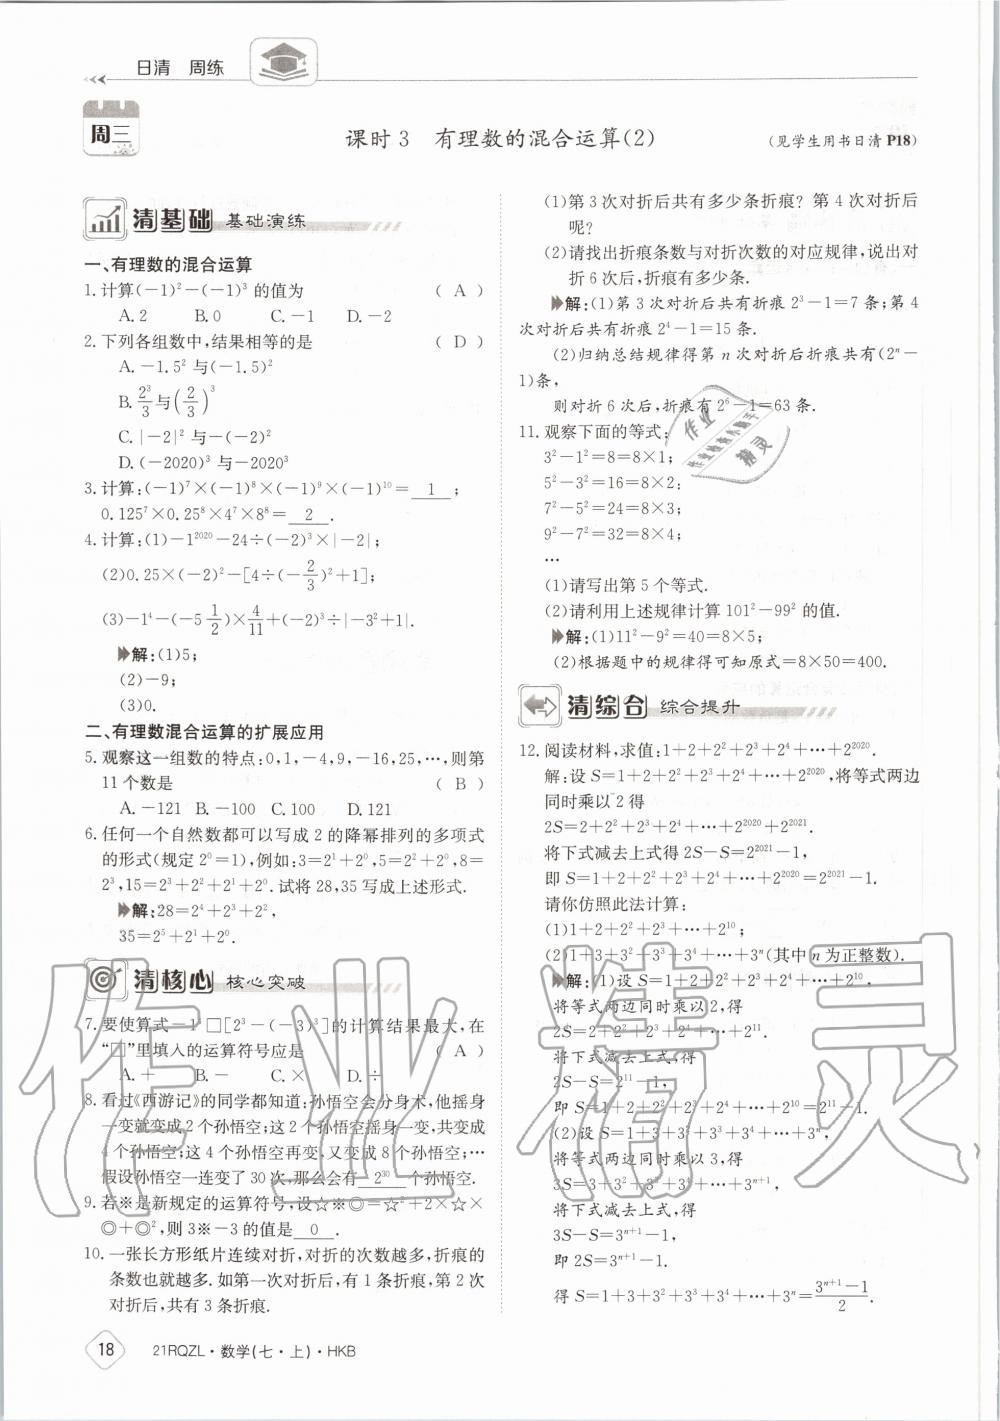 日清 周练
周三
课时 3 有理数的混合运算(2)
(见学生用书日清 P18)
清基础 基础演练
一、有理数的混合运算
1. 计算(-1)²-(-1)³ 的值为 ( A )
A. 2 B. 0 C. -1 D. -2
2. 下列各组数中,结果相等的是 ( D )
A. -1.5² 与(-1.5)²
B. 2³/3 与(2/3)³
C. |-2|² 与-(-2)²
D. (-2020)³ 与-2020³
3. 计算:(-1)⁷×(-1)⁸×(-1)⁹×(-1)¹⁰= 1 ;
0.125⁷×0.25⁸×4⁷×8⁸= 2 .
4. 计算:(1)-1²⁰²⁰-24÷(-2)³×|-2|;
(2)0.25×(-2)²-[4÷(-2/3)²+1];
(3)-1⁴-(-5 1/2)×4/11+(-2)³÷|-3²+1|.
解:(1)5;
(2)-9;
(3)0.
二、有理数混合运算的扩展应用
5. 观察这一组数的特点:0,1,-4,9,-16,25,…,则第
11 个数是 ( B )
A. -121 B. -100 C. 100 D. 121
6. 任何一个自然数都可以写成 2 的降幂排列的多项式
的形式(规定 2⁰=1),例如:3=2¹+2⁰,5=2²+2⁰,8=
2³,15=2³+2²+2¹+2⁰. 试将 28,35 写成上述形式.
解:28=2⁴+2³+2²,
35=2⁵+2¹+2⁰.
清核心 核心突破
7. 要使算式-1□[2³-(-3)³]的计算结果最大,在
“□”里填入的运算符号应是 ( A )
A. + B. - C. × D. ÷
8. 看过《西游记》的同学都知道:孙悟空会分身术,他摇身
一变就变成 2 个孙悟空;这 2 个孙悟空摇身一变,共变成
4 个孙悟空;这 4 个孙悟空再变,又变成 8 个孙悟空;…
假设孙悟空一连变了 30 次,那么会有 2³⁰ 个孙悟空.
9. 若※是新规定的运算符号,设☆※◎=☆²+2×☆×
◎+◎²,则 3※-3 的值是 0 .
10. 一张长方形纸片连续对折,对折的次数越多,折痕的
条数也就越多. 如第一次对折后,有 1 条折痕,第 2 次
对折后,共有 3 条折痕.
(1)第 3 次对折后共有多少条折痕?第 4 次对折后
呢?
(2)请找出折痕条数与对折次数的对应规律,说出对
折 6 次后,折痕有多少条.
解:(1)第 3 次对折后共有折痕 2³-1=7 条;第 4
次对折后共有折痕 2⁴-1=15 条.
(2)归纳总结规律得第 n 次对折后折痕共有(2ⁿ-
1)条,
则对折 6 次后,折痕有 2⁶-1=63 条.
11. 观察下面的等式:
3²-1²=8=8×1;
5²-3²=16=8×2;
7²-5²=24=8×3;
9²-7²=32=8×4;
…
(1)请写出第 5 个等式.
(2)请利用上述规律计算 101²-99² 的值.
解:(1)11²-9²=40=8×5;
(2)根据题中的规律得可知原式=8×50=400.
清综合 综合提升
12. 阅读材料,求值:1+2+2²+2³+2⁴+…+2²⁰²⁰.
解:设 S=1+2+2²+2³+2⁴+…+2²⁰²⁰,将等式两边
同时乘以 2 得
2S=2+2²+2³+2⁴+…+2²⁰²⁰+2²⁰²¹.
将下式减去上式得 2S-S=2²⁰²¹-1,
即 S=1+2+2²+2³+2⁴+…+2²⁰²⁰=2²⁰²¹-1.
请你仿照此法计算:
(1)1+2+2²+2³+…+2¹⁰;
(2)1+3+3²+3³+3⁴+…+3ⁿ(其中 n 为正整数).
解:(1)设 S=1+2+2²+2³+2⁴+…+2¹⁰,
将等式两边同时乘以 2,得
2S=2+2²+2³+2⁴+…+2¹¹.
将下式减去上式,得
2S-S=2¹¹-1,
即 S=1+2+2²+2³+2⁴+…+2¹⁰=2¹¹-1.
(2)设 S=1+3+3²+3³+3⁴+…+3ⁿ,
将等式两边同时乘以 3,得
3S=3+3²+3³+3⁴+…+3ⁿ⁺¹,
将下式减去上式,得
3S-S=3ⁿ⁺¹-1,
即 2S=3ⁿ⁺¹-1.
得 S=1+3+3²+3³+3⁴+…+3ⁿ=(3ⁿ⁺¹-1)/2.
18 21RQZL·数学(七·上)·HKB
作业精灵